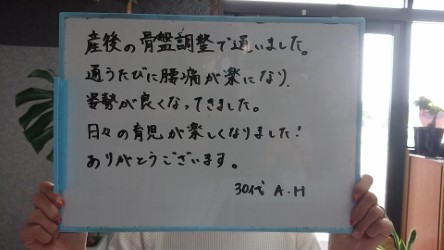 産後の骨盤調整で通いました。
通うたびに腰痛が楽になり、
姿勢が良くなってきました。
日々の育児が楽しくなりました!
ありがとうございます。
30代 A.H